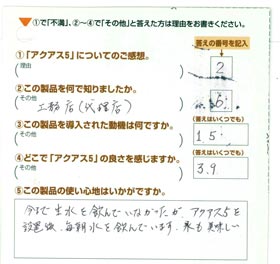 ▼①で「不満」、②~④で「その他」と答えた方は理由をお書きください。
答えの番号を記入
①「アクアス5」についてのご感想。
(理由 )
2
②この製品を何で知りましたか。
(その他 工務店(代理店) )
6
③この製品を導入された動機は何ですか。
(その他 )
答えはいくつでも
1 5
④どこで「アクアス5」の良さを感じますか。
(その他 )
答えはいくつでも
3.9
⑤この製品の使い心地はいかがですか。
今まで生水を飲んでいなかったが、アクアス5を
設置後、毎朝水を飲んでいます。